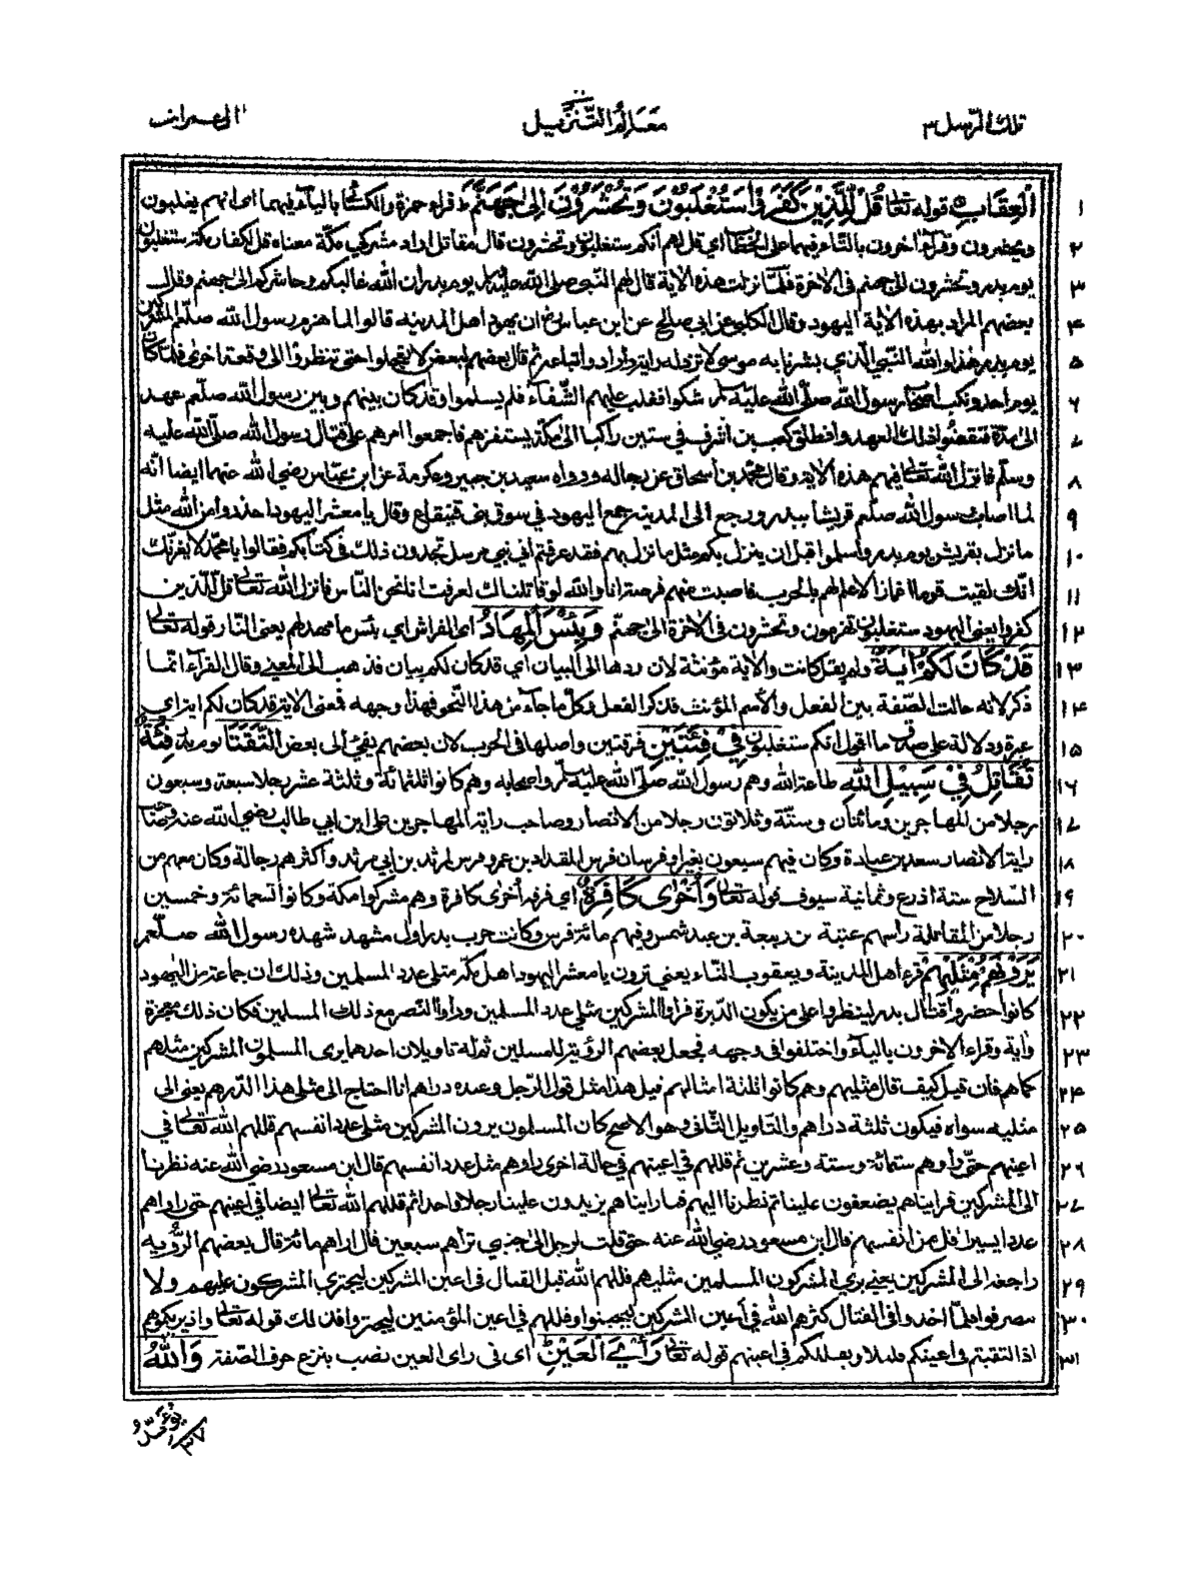 تلك الرسل ٣ معالم التنزيل ال عمران
١ الْعِقَابِ ٥ قوله تعالى قُلْ لِلَّذِيْنَ كَفَرُوْا سَتُغْلَبُوْنَ وَتُحْشَرُوْنَ اِلٰى جَهَنَّمَ ط قراء حمزة والكسائي بالياء فيهما اى انهم يغلبون
٢ ويحشرون وقراء اخرون بالتاء فيهما على الخطاب اي قل لهم انكم ستغلبون وتحشرون قال مقاتل اراد مشركي مكة معناه قل لكفار مكة ستغلبون
٣ يوم بدر وتحشرون الى جهنم في الاخرة فلما نزلت هذه الاية قال لهم النبي صلى الله عليه وسلم يوم بدر ان الله غالبكم وحاشركم الى جهنم وقال
٤ بعضهم المراد بهذه الاية اليهود وقال الكلبي عن ابي صالح عن ابن عباس رض ان يهود اهل المدينة قالوا لما هزم رسول الله صلعم المشركين
٥ يوم بدر هذا والله النبي الذي بشرنا به موسى لا ترد له راية وارادوا اتباعه ثم قال بعضهم لبعض لا تعجلوا حتى تنظروا الى وقعة اخرى فلما كان
٦ يوم احد ونكب اصحاب رسول الله صلى الله عليه وسلم شكوا فغلب عليهم الشقاء فلم يسلموا وقد كان بينهم وبين رسول الله صلعم عهد
٧ الى مدة فنقضوا ذلك العهد وانطلق كعب بن اشرف في ستين راكبا الى مكة يستفزهم فاجمعوا امرهم على قتال رسول الله صلى الله عليه
٨ وسلم فانزل الله تعالى فيهم هذه الاية وقال محمد بن اسحاق عن رجاله ورواه سعيد بن جبير وعكرمة عن ابن عباس رضي الله عنهما ايضا انه
٩ لما اصاب رسول الله صلعم قريشا ببدر ورجع الى المدينة جمع اليهود في سوق بني قينقاع وقال يا معشر اليهود احذروا من الله مثل
١٠ ما نزل بقريش يوم بدر واسلموا قبل ان ينزل بكم مثل ما نزل بهم فقد عرفتم اني نبي مرسل تجدون ذلك في كتابكم فقالوا يا محمد لا يغرنك
١١ انك لقيت قوما اغمارا لا علم لهم بالحرب فاصبت منهم فرصة وانا والله لو قاتلناك لعرفت انا نحن الناس فانزل الله تعالى قل للذين
١٢ كفروا يعني اليهود ستغلبون تهزمون وتحشرون في الاخرة الى جهنم وَبِئْسَ الْمِهَادُ اى الفراش اي بئس ما مهد لهم يعنى النار قوله تعالى
١٣ قَدْ كَانَ لَكُمْ اٰيَةٌ ولم يقل كانت والاية مؤنثة لان ردها الى البيان اي قد كان لكم بيان فذهب الى المعنى وقال الفراء انما
١٤ ذكر لانه حالت الصفة بين الفعل والاسم المؤنث فذكر الفعل وكل ما جاء من هذا النحو فهذا وجهه فمعنى الاية قد كان لكم اية اي
١٥ عبرة ودلالة على صدق ما اقول انكم ستغلبون فِيْ فِئَتَيْنِ فرقتين واصلها فى الحرب لان بعضهم يفئ الى بعض الْتَقَتَا يوم بدر فِئَةٌ
١٦ تُقَاتِلُ فِيْ سَبِيْلِ اللّٰهِ طاعة الله وهم رسول الله صلى الله عليه وسلم واصحابه وهم كانوا ثلثمائة وثلثة عشر رجلا سبعة وسبعون
١٧ رجلا من المهاجرين ومائتان وستة وثلاثون رجلا من الانصار وصاحب راية المهاجرين على ابن ابي طالب رضي الله عنه وصاحب
١٨ راية الانصار سعد بن عبادة وكان فيهم سبعون بعيرا وفرسان فرس للمقداد بن عمرو وفرس لمرثد بن ابي مرثد واكثرهم رجالة وكان معهم من
١٩ السلاح ستة اذرع وثمانية سيوف قوله تعالى وَاُخْرٰى كَافِرَةٌ اي فرقة اخرى كافرة وهم مشركوا مكة وكانوا تسعمائة وخمسين
٢٠ رجلا من المقاتلة راسهم عتبة بن ربيعة بن عبد شمس وفيهم مائة فرس وكانت حرب بدر اول مشهد شهده رسول الله صلعم
٢١ يَرَوْنَهُمْ مِثْلَيْهِمْ قرء اهل المدينة ويعقوب بالتاء يعني ترون يا معشر اليهود اهل مكة مثلى عدد المسلمين وذلك ان جماعة من اليهود
٢٢ كانوا حضروا قتال بدر لينظروا على من يكون الدبرة فراوا المشركين مثلي عدد المسلمين وراوا النصر مع ذلك للمسلمين فكان ذلك معجزة
٢٣ واية وقراء الاخرون بالياء واختلفوا فى وجهه فجعل بعضهم الرؤية للمسلمين ثم له تاويلان احدهما يرى المسلمون المشركين مثليهم
٢٤ كما هم فان قيل كيف قال مثليهم وهم كانوا ثلثة امثالهم قيل هذا مثل قول الرجل وعنده درهم انا احتاج الى مثلى هذا الدرهم يعنى الى
٢٥ مثليه سواه فيكون ثلثة دراهم والتاويل الثاني وهو الاصح كان المسلمون يرون المشركين مثلى عدد انفسهم قللهم الله تعالى في
٢٦ اعينهم حتى راوهم ستمائة وستة وعشرين ثم قللهم في اعينهم في حالة اخرى راوهم مثل عدد انفسهم قال ابن مسعود رضي الله عنه نظرنا
٢٧ الى المشركين فرايناهم يضعفون علينا ثم نظرنا اليهم فما رايناهم يزيدون علينا رجلا واحدا ثم قللهم الله تعالى ايضا في اعينهم حتى راواهم
٢٨ عددا يسيرا اقل من انفسهم قال ابن مسعود رضي الله عنه حتى قلت لرجل الى جنبي تراهم سبعين قال اراهم مائة قال بعضهم الرُّؤية
٢٩ راجعة الى المشركين يعني يرى المشركون المسلمين مثليهم قللهم الله قبل القتال في اعين المشركين ليجترى المشركون عليهم ولا
٣٠ ينصرفوا فلما اخذوا فى القتال كثرهم الله في اعين المشركين ليجبنوا وقللهم في اعين المؤمنين ليجتروا فذلك قوله تعالى واذ يريكموهم
٣١ اذ التقيتم في اعينكم قليلا ويقللكم في اعينهم قوله تعالى رَأْيَ الْعَيْنِ اى فى راى العين نصب بنزع حرف الصفة وَاللّٰهُ